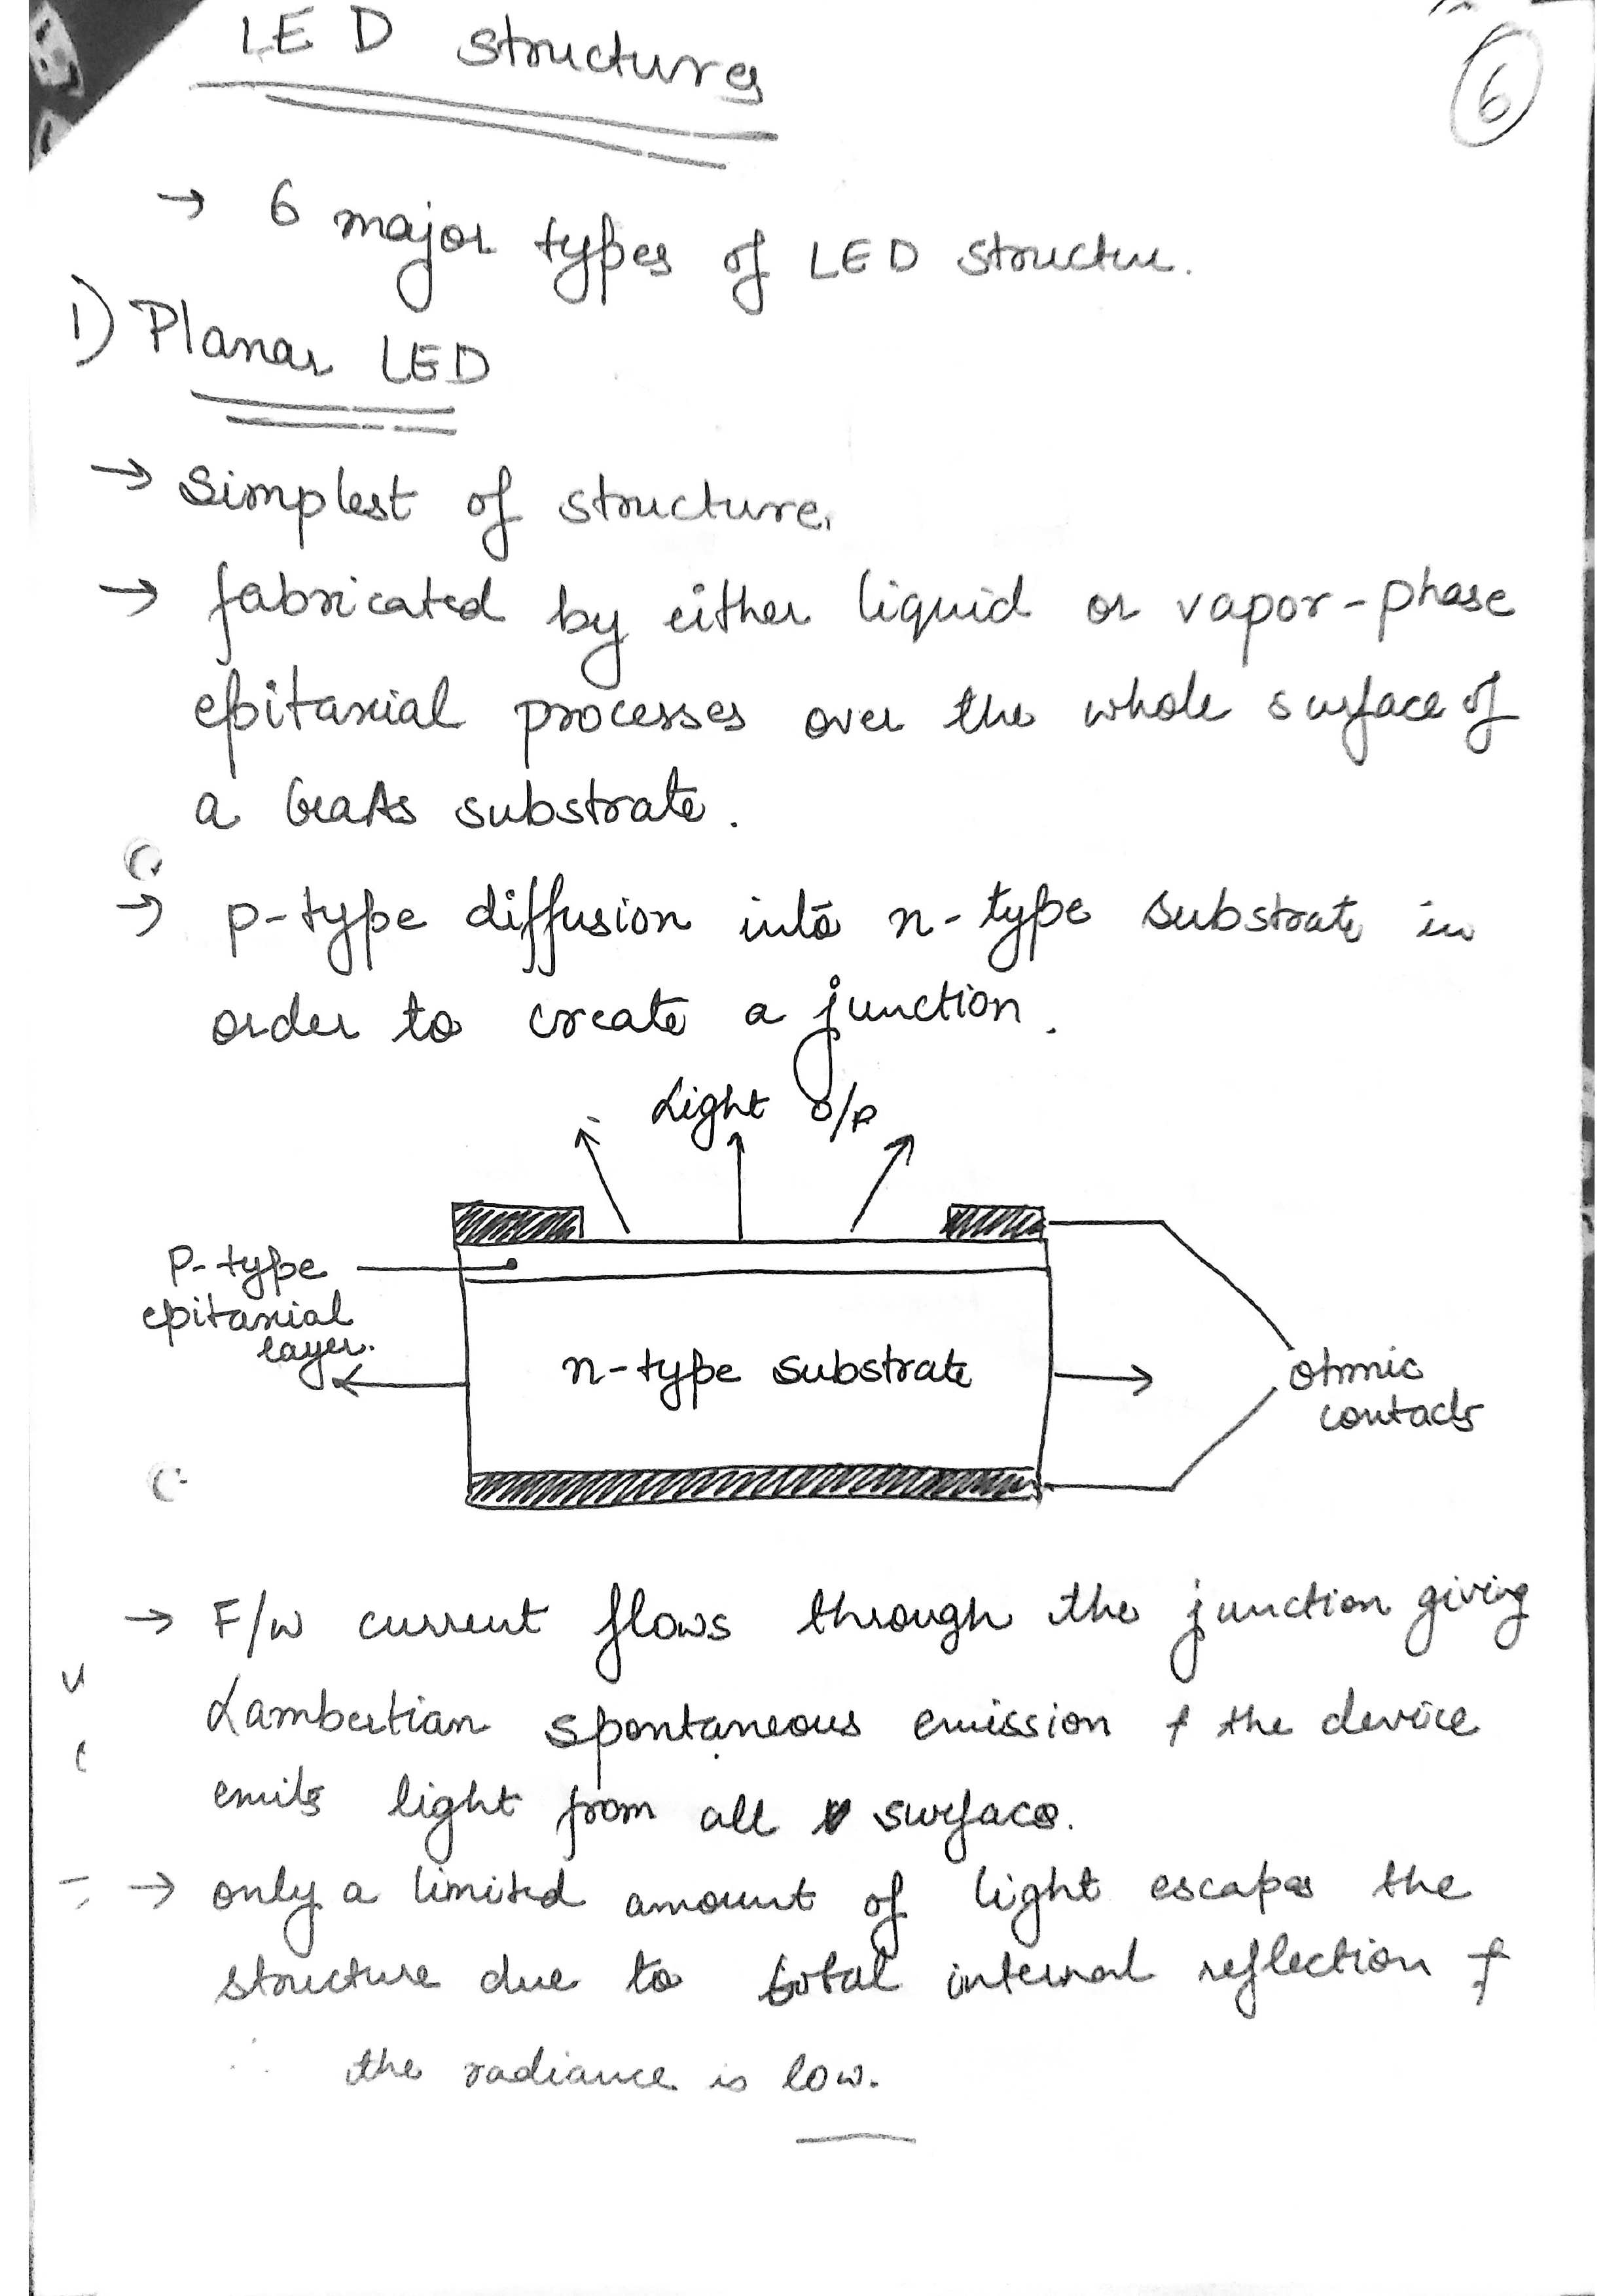 LED structures
6
→ 6 major types of LED structure.
1) Planar LED
→ Simplest of structure.
→ fabricated by either liquid or vapor-phase
epitaxial processes over the whole surface of
a GaAs substrate.
→ p-type diffusion into n-type substrate in
order to create a junction.
Light O/P
P-type
epitaxial
layer.
n-type substrate
ohmic
contacts
→ F/w current flows through the junction giving
Lambertian spontaneous emission & the device
emits light from all surfaces.
→ only a limited amount of light escapes the
structure due to total internal reflection &
∴ the radiance is low.